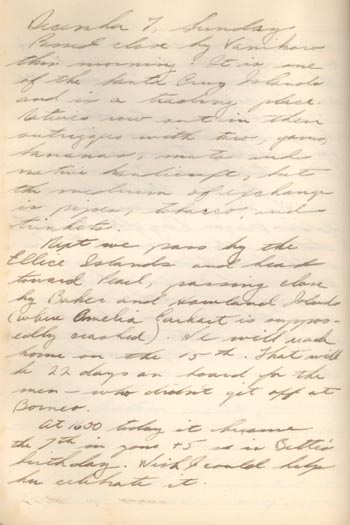 December 7, Sunday
Passed close by Vanikoro
this morning. It is one
of the Santa Cruz Islands
and is a trading place.
Natives row out in their
outriggers with taro, yams,
bananas, mats and
native handicraft, but
the medium of exchange
is pipes, tobacco and
trinkets.
Next we pass by the
Ellice Islands and head
toward Pearl, passing close
by Baker and Howland Islands
(where Amelia Earhart is suppos-
edly crashed). We will reach
home on the 15th. That will
be 22 days on board for the
men - who didn't get off at
Borneo.
At 1630 today it became
the 7th in zone +5 so is
birthday. Wish I could help
her celebrate it.